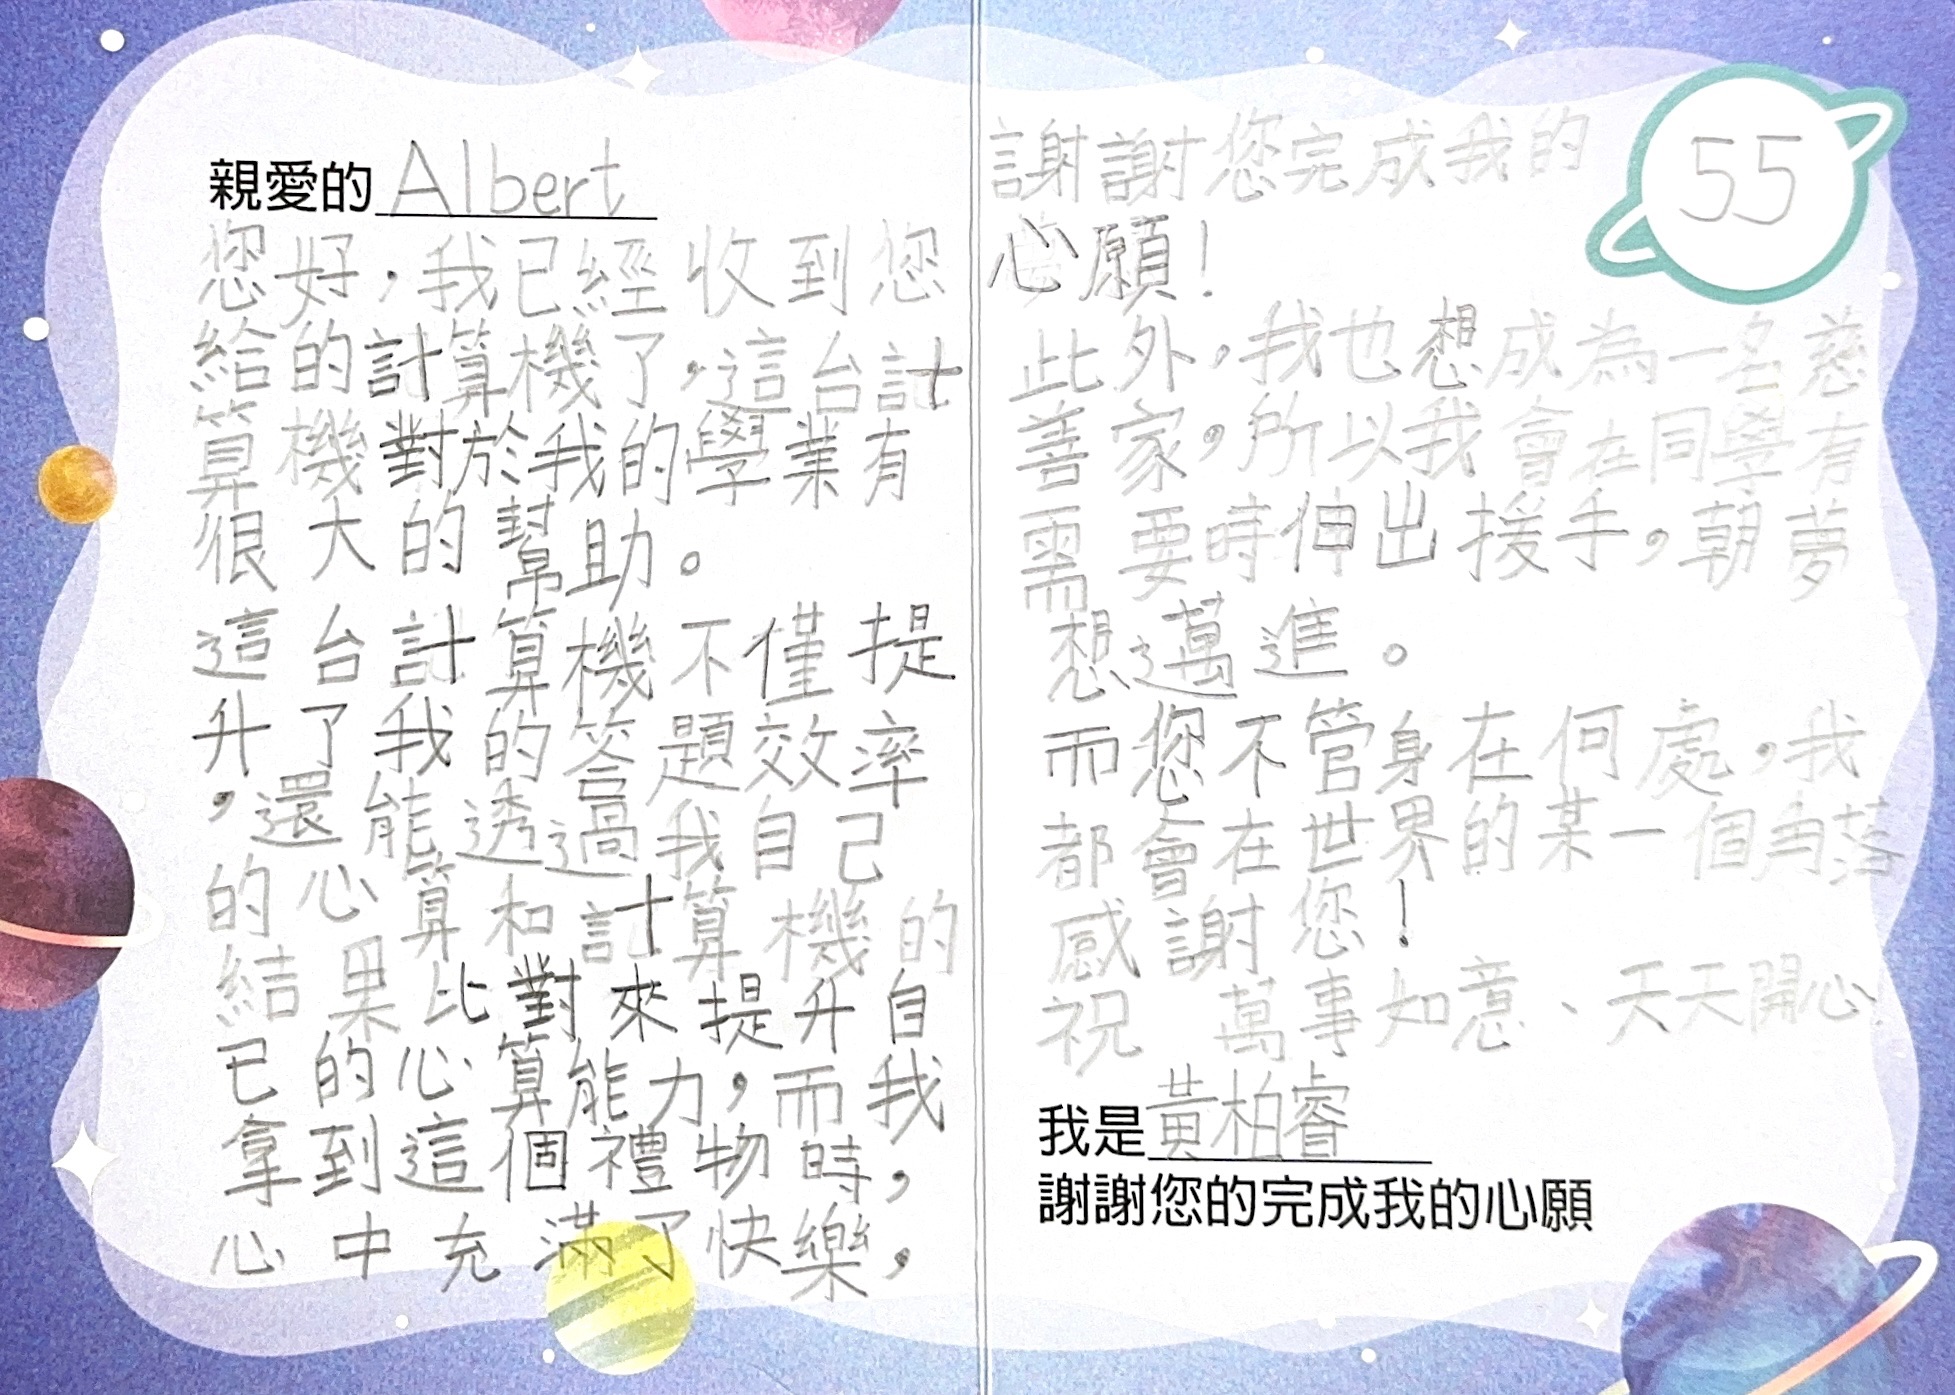 親愛的 Albert
您好，我已經收到您
給的計算機了，這台計
算機對於我的學業有
很大的幫助。
這台計算機不僅提
升了我的答題效率
，還能透過我自己
的心算和計算機的
結果比對來提升自
己的心算能力，而我
拿到這個禮物時，
心中充滿了快樂，
謝謝您完成我的
心願！
55
此外，我也想成為一名慈
善家，所以我會在同學有
需要時伸出援手，朝夢
想邁進。
而您不管身在何處，我
都會在世界的某一個角落
感謝您！
祝 萬事如意、天天開心
我是黃柏睿
謝謝您的完成我的心願